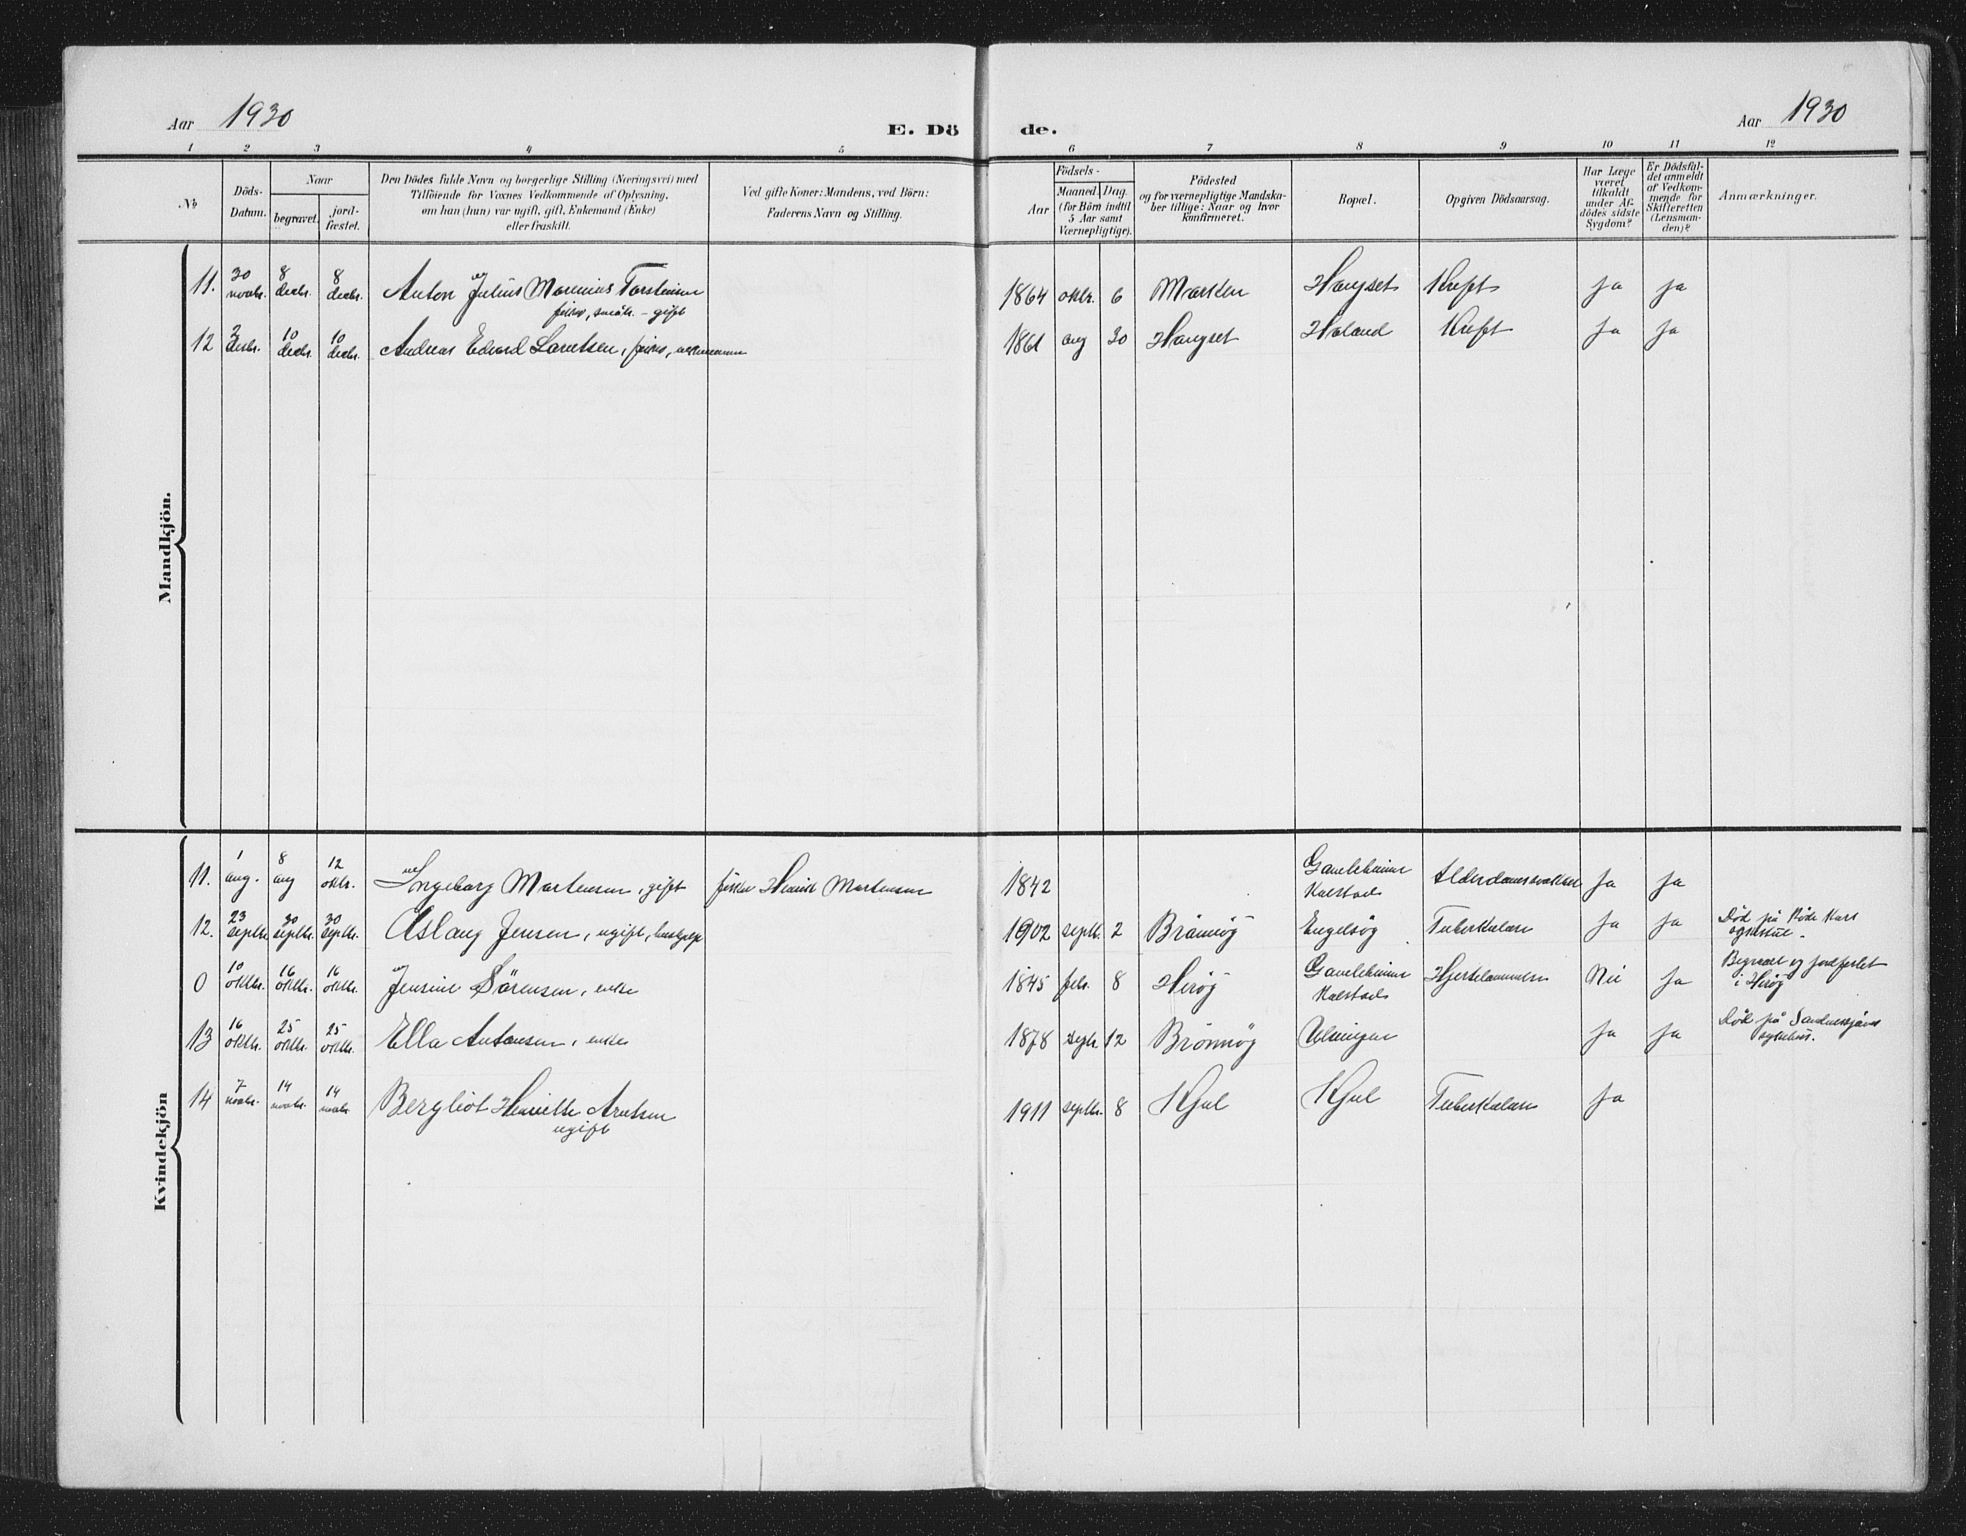 Aar 1930
E. Dö de.
Aar 1930
1 2 3 4 5 6 7 8 9 10 11 12
No
Döds-
Datum.
Naar
begravet.
jord-
fæstet.
Den Dödes fulde Navn og borgerlige Stilling (Næringsvei) med
Tilföiende for Voxnes Vedkommende af Oplysning,
om han (hun) var ugift, gift, Enkemand (Enke)
eller fraskilt.
Ved gifte Koner: Mandens, ved Börn:
Faderens Navn og Stilling.
Födsels-
Aar
Maaned.
Dag.
(for Börn indtil
5 Aar samt
Værnepligtige).
Födested
og for værnepligtige Mandska-
ber tillige: Naar og hvor
konfirmeret.
Bopæl.
Opgiven Dödsaarsag.
Har Læge
været
tilkaldt
under Af-
dödes sidste
Sygdom?
Er Dödsfal-
det anmeldt
af Vedkom-
mende for
Skifteretten
(Lensman-
den)?
Anmærkninger.
Mandkjön.
11. 30 novbr. 8 decbr. 8 decbr. Anton Julius Torstensen 1864 oktr. 6 Kreft ja ja
gift
12 2 decbr. 10 decbr. 10 decbr. Andreas Edvard 1861 aug 30 Kreft ja ja
Kvindekjön
11. 1 aug. 8 aug 12 oktr. Ingeborg Mortensen, gift fisker Henrik Mortensen 1842 Gamlehjem Alderdomssvakhet ja ja
12. 23 septbr. 30 septbr. 30 septbr. Aslaug Jensen, ugift, 1902 septb. 2 Brönnöy Engelsöy Tuberkulose ja ja Död på Röde Kors
0 10 oktbr. 16 oktbr. 16 oktbr. Jensine Sörensen, enke 1845 febr. 8 Heröy Gamlehjem Hjertelammelse Nei ja Begravet og jordfestet
i Heröy
13 16 oktbr. 25 oktbr. 25 oktbr. Ella Antonsen, enke 1878 septr. 12 Brönnöy ja ja Död på Sandnessjöen
sykehus.
14 7 novbr. 14 novbr. 14 novbr. Bergliot Henriette Arntsen 1911 septbr. 8 Tuberkulose ja
ugift